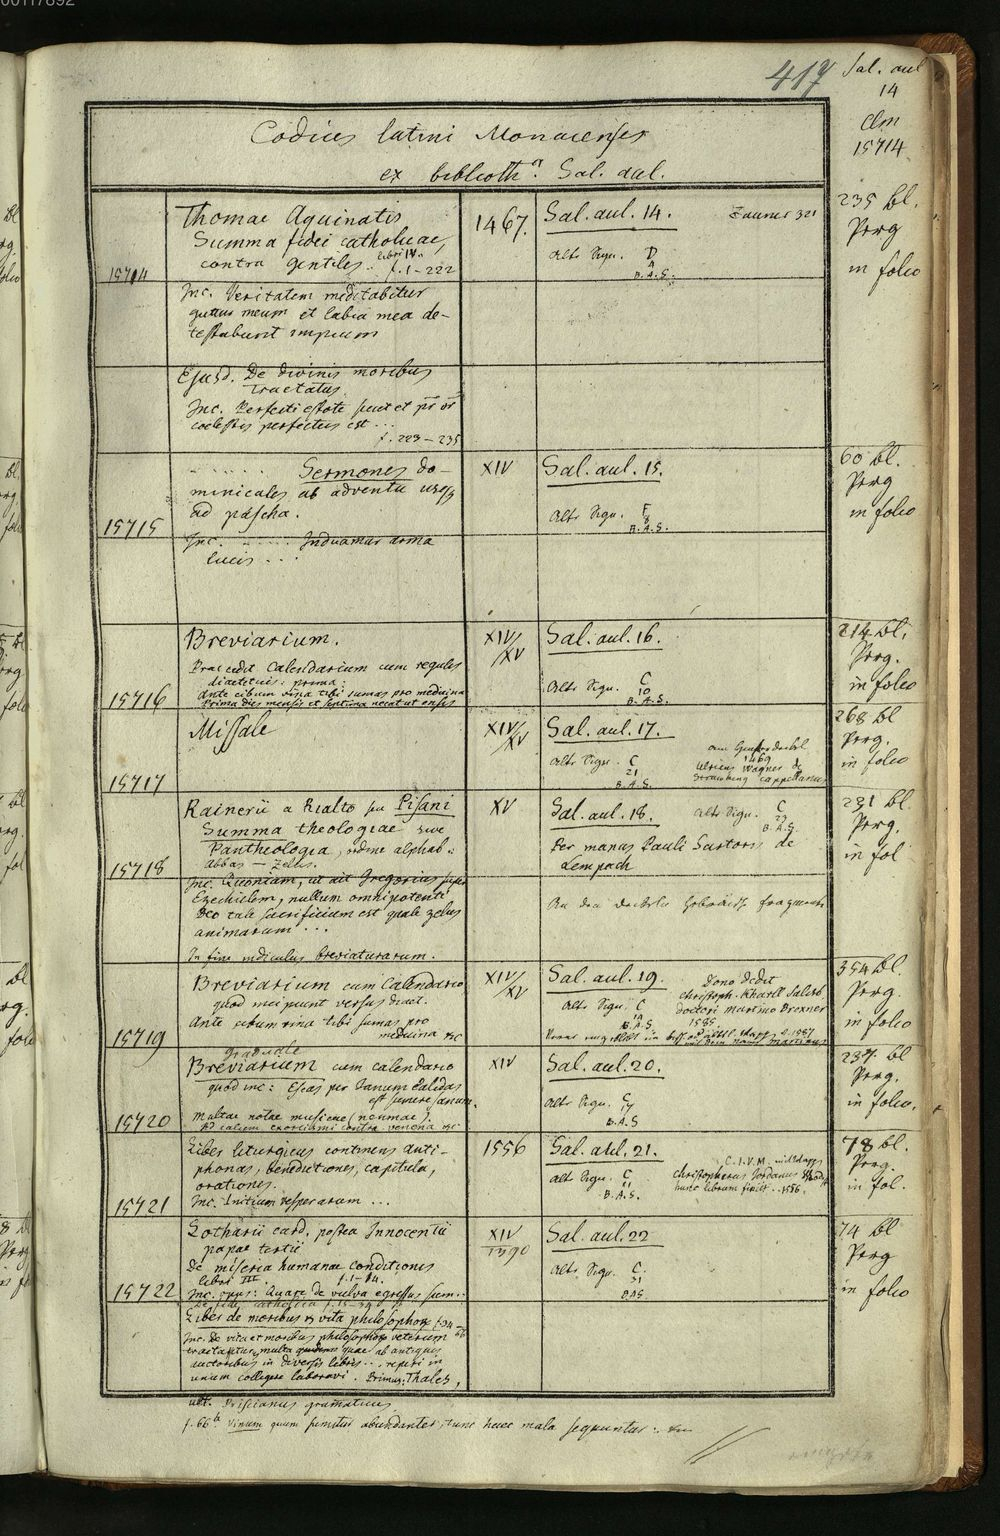 00117892
417
Sal. aul
14
Clm
15714
Codices latini Monacenses
ex biblioth. Sal. aul.
15714
Thomae Aquinatis
Summa fidei catholicae,
contra gentiles. libri IV.
f. 1–222
1467.
Sal. aul. 14.
Zauner 321
Alte Sign. D
4
B.A.S.
235 bl.
Perg
in folio
Inc. Veritatem meditabitur
guttur meum et labia mea de-
testabunt impium
Ejusd. De divinis moribus
tractatus
Inc. Perfecti estote sicut et pr vr
coelestis perfectus est ...
f. 223–235
15715
Sermones do-
minicales ab adventu usq
ad pascha.
XIV
Sal. aul. 15.
Alte Sign. F
8
B.A.S.
60 bl.
Perg
in folio
Inc. Induamur arma
lucis ...
15716
Breviarium.
Praecedit Calendarium cum regulis
diaeteticis: prima:
Ante cibum vina tibi sumas pro medicina
Prima dies mensis et septima necat ut ensis
XIV/XV
Sal. aul. 16.
Alte Sign. C
10
B.A.S.
214 bl.
Perg.
in folio
15717
Missale
XIV/XV
Sal. aul. 17.
Alte Sign. C
21
B.A.S.
1469
Ulricus Wagner de
Straubing cappellanus
268 bl
Perg.
in folio
15718
Rainerii a Rialto seu Pisani
Summa theologiae sive
Pantheologia, ordine alphab.:
abbas — zelus.
XV
Sal. aul. 18.
Alte Sign. C
B.A.S.
Per manus Pauli Sartoris de
Lempach
231 bl.
Perg.
in fol
Inc. Quoniam, ut ait Gregorius super
Ezechielem, nullum omnipotenti
Deo tale sacrificium est quale zelus
animarum ...
In fine indiculus breviaturarum.
An den Deckeln hebräisch fragmente
15719
Breviarium cum Calendario
quod incipiunt versus diaet.
Ante cibum vina tibi sumas pro
medicina etc
XIV/XV
Sal. aul. 19.
Alte Sign. C
B.A.S.
Dono dedit
Christoph. Kharll Salisb
doctori Martino Brexner
1585
354 bl.
Perg.
in folio
15720
Graduale
Breviarium cum calendario
quod inc: Escas per Janum calidas
est sumere sanum.
Multae notae musicae (neumae)
Ad calcem exorcismi contra venena etc
XIV
Sal. aul. 20.
Alte Sign. C
17
B.A.S
237 bl
Perg.
in folio.
15721
Liber liturgicus continens anti-
phonas, benedictiones, capitula,
orationes.
Inc. Initium vesperarum ...
1556
Sal. aul. 21.
Alte Sign. C
11
B.A.S.
C. I. V. M.
Christopherus Jordanus
hunc librum fixit 1556.
78 bl.
Perg.
in fol.
15722
Lotharii card. postea Innocentii
papae tertii
De miseria humanae conditionis
libri III. f. 1–14.
Inc. Quare de vulva egressus sum..
XIV
1390
Sal. aul. 22
Alte Sign. C.
31
B.A.S.
74 bl
Perg
in folio
De fide catholica f. 15–34
Liber de moribus & vita philosophor f. 34–66
Inc. De vita et moribus philosophor veterum
tractaturus multa quae ab antiquis
auctoribus in diversis libris ... reperi in
unum colligere laboravi. Primus: Thales,
ult. Priscianus gramaticus
f. 66b Vinum quum sumitur abundanter, tunc haec mala sequuntur: